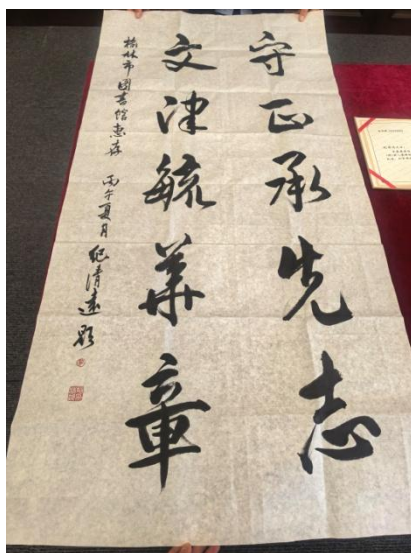 守正承先志
文津毓華章
榆林市图书馆惠存 丙午夏月 纪清远题